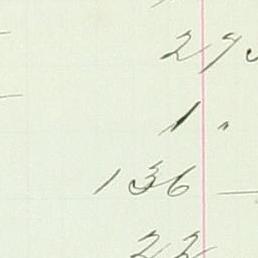 27
1 "
136 —
22